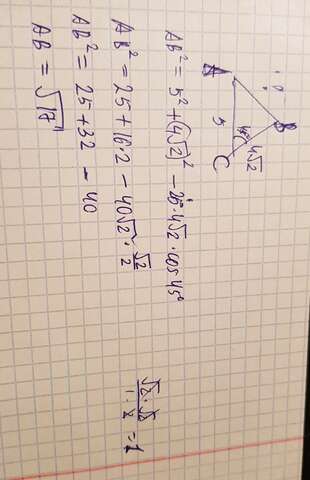 A
B
C
5
45°
4√2
AB² = 5² + (4√2)² - 2·5·4√2 · cos 45°
AB² = 25 + 16·2 - 40√2 · √2/2
AB² = 25 + 32 - 40
AB = √17
√2·√2 / 1·2 = 1